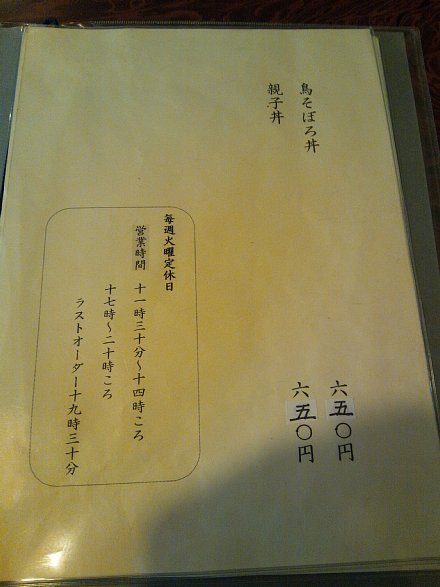 鳥そぼろ丼 六五〇円
親子丼 六五〇円
毎週火曜定休日
営業時間 十一時三十分～十四時ころ
十七時～二十時ころ
ラストオーダー十九時三十分